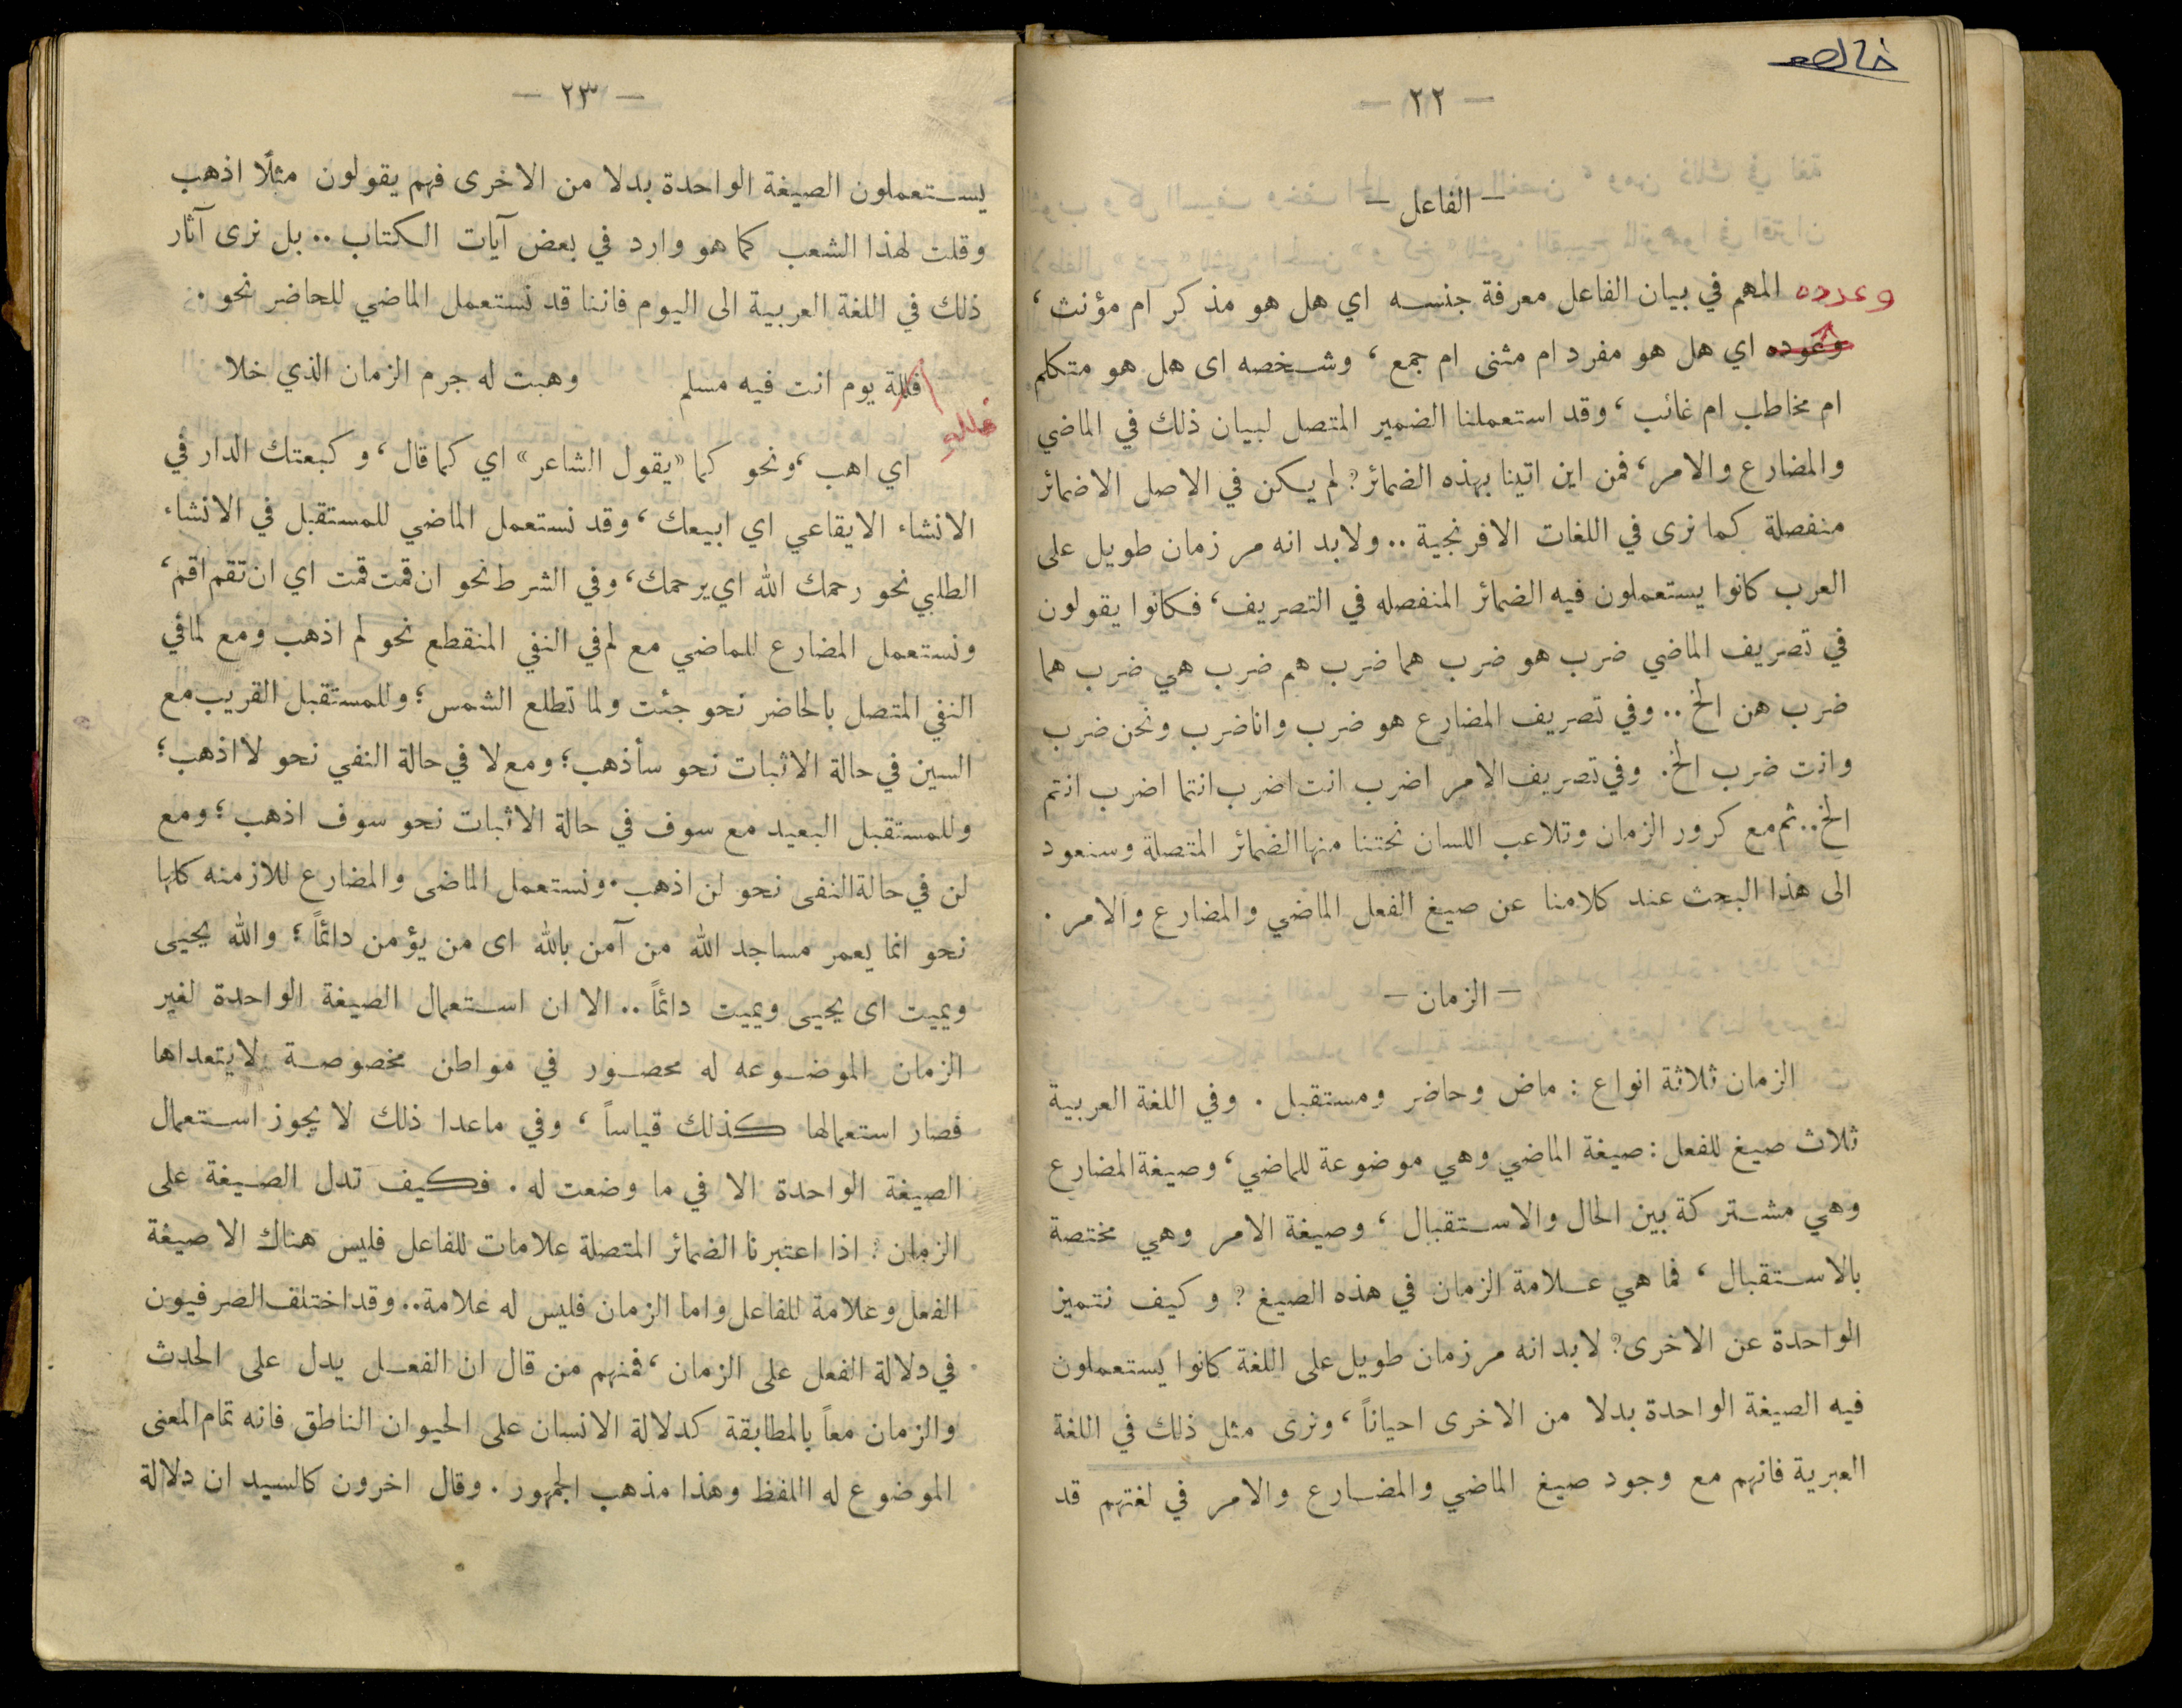 خالصه
— ٢٢ —
— الفاعل —
وعدده
المهم في بيان الفاعل معرفة جنسه اي هل هو مذكر ام مؤنث ،
وعوده اي هل هو مفرد ام مثنى ام جمع ، وشخصه اى هل هو متكلم
ام مخاطب ام غائب ، وقد استعملنا الضمير المتصل لبيان ذلك في الماضي
والمضارع والامر ، فمن اين اتينا بهذه الضمائر؟ لم يكن في الاصل الاضمائر
منفصلة كما نرى في اللغات الافرنجية .. ولابد انه مر زمان طويل على
العرب كانوا يستعملون فيه الضمائر المنفصله في التصريف ، فكانوا يقولون
في تصريف الماضي ضرب هو ضرب هما ضرب هم ضرب هي ضرب هما
ضرب هن الخ .. وفي تصريف المضارع هو ضرب وانا ضرب ونحن ضرب
وانت ضرب الخ. وفي تصريف الامر اضرب انت اضرب انتما اضرب انتم
الخ.. ثم مع كرور الزمان وتلاعب اللسان نحتنا منها الضمائر المتصلة وسنعود
الى هذا البحث عند كلامنا عن صيغ الفعل الماضي والمضارع والامر .
— الزمان —
الزمان ثلاثة انواع : ماض وحاضر ومستقبل . وفي اللغة العربية
ثلاث صيغ للفعل : صيغة الماضي وهي موضوعة للماضي ، وصيغة المضارع
وهي مشتركة بين الحال والاستقبال ، وصيغة الامر وهي مختصة
بالاستقبال ، فما هي علامة الزمان في هذه الصيغ ؟ وكيف نتميز
الواحدة عن الاخرى؟ لابد انه مر زمان طويل على اللغة كانوا يستعملون
فيه الصيغة الواحدة بدلا من الاخرى احياناً ، ونرى مثل ذلك في اللغة
العبرية فانهم مع وجود صيغ الماضي والمضارع والامر في لغتهم قد
— ٢٣ —
يستعملون الصيغة الواحدة بدلا من الاخرى فهم يقولون مثلًا اذهب
وقلت لهذا الشعب كما هو وارد في بعض آيات الكتاب .. بل نرى آثار
ذلك في اللغة العربية الى اليوم فاننا قد نستعمل الماضي للحاضر نحو .
فللة يوم انت فيه مسلم وهبت له جرم الزمان الذي خلا
فلله
اي اهب ، ونحو كما «يقول الشاعر» اي كما قال ، وكبعتك الدار في
الانشاء الايقاعي اي ابيعك ، وقد نستعمل الماضي للمستقبل في الانشاء
الطلبي نحو رحمك الله اي يرحمك ، وفي الشرط نحو ان قمت قمت اي ان تقم اقم ،
ونستعمل المضارع للماضي مع لم في النفي المنقطع نحو لم اذهب ومع لما في
النفي المتصل بالحاضر نحو جئت ولما تطلع الشمس ؛ وللمستقبل القريب مع
السين في حالة الاثبات نحو سأذهب ؛ ومع لا في حالة النفي نحو لا اذهب ؛
وللمستقبل البعيد مع سوف في حالة الاثبات نحو سوف اذهب ؛ ومع
لن في حالة النفى نحو لن اذهب . ونستعمل الماضى والمضارع للازمنه كلها
نحو انما يعمر مساجد الله من آمن بالله اى من يؤمن دائماً ؛ والله يحيى
ويميت اى يحيى ويميت دائماً .. الا ان استعمال الصيغة الواحدة لغير
الزمان الموضوعه له محصور في مواطن مخصوصة لا يتعداها
فصار استعمالها كذلك قياساً ، وفي ماعدا ذلك لا يجوز استعمال
الصيغة الواحدة الا في ما وضعت له . فكيف تدل الصيغة على
الزمان ؟ اذا اعتبرنا الضمائر المتصلة علامات للفاعل فليس هناك الا صيغة
الفعل وعلامة للفاعل واما الزمان فليس له علامة .. وقد اختلف الصرفيون
في دلالة الفعل على الزمان ، فمنهم من قال ان الفعل يدل على الحدث
والزمان معاً بالمطابقة كدلالة الانسان على الحيوان الناطق فانه تمام المعنى
الموضوع له اللفظ وهذا مذهب الجمهور . وقال اخرون كالسيد ان دلالة